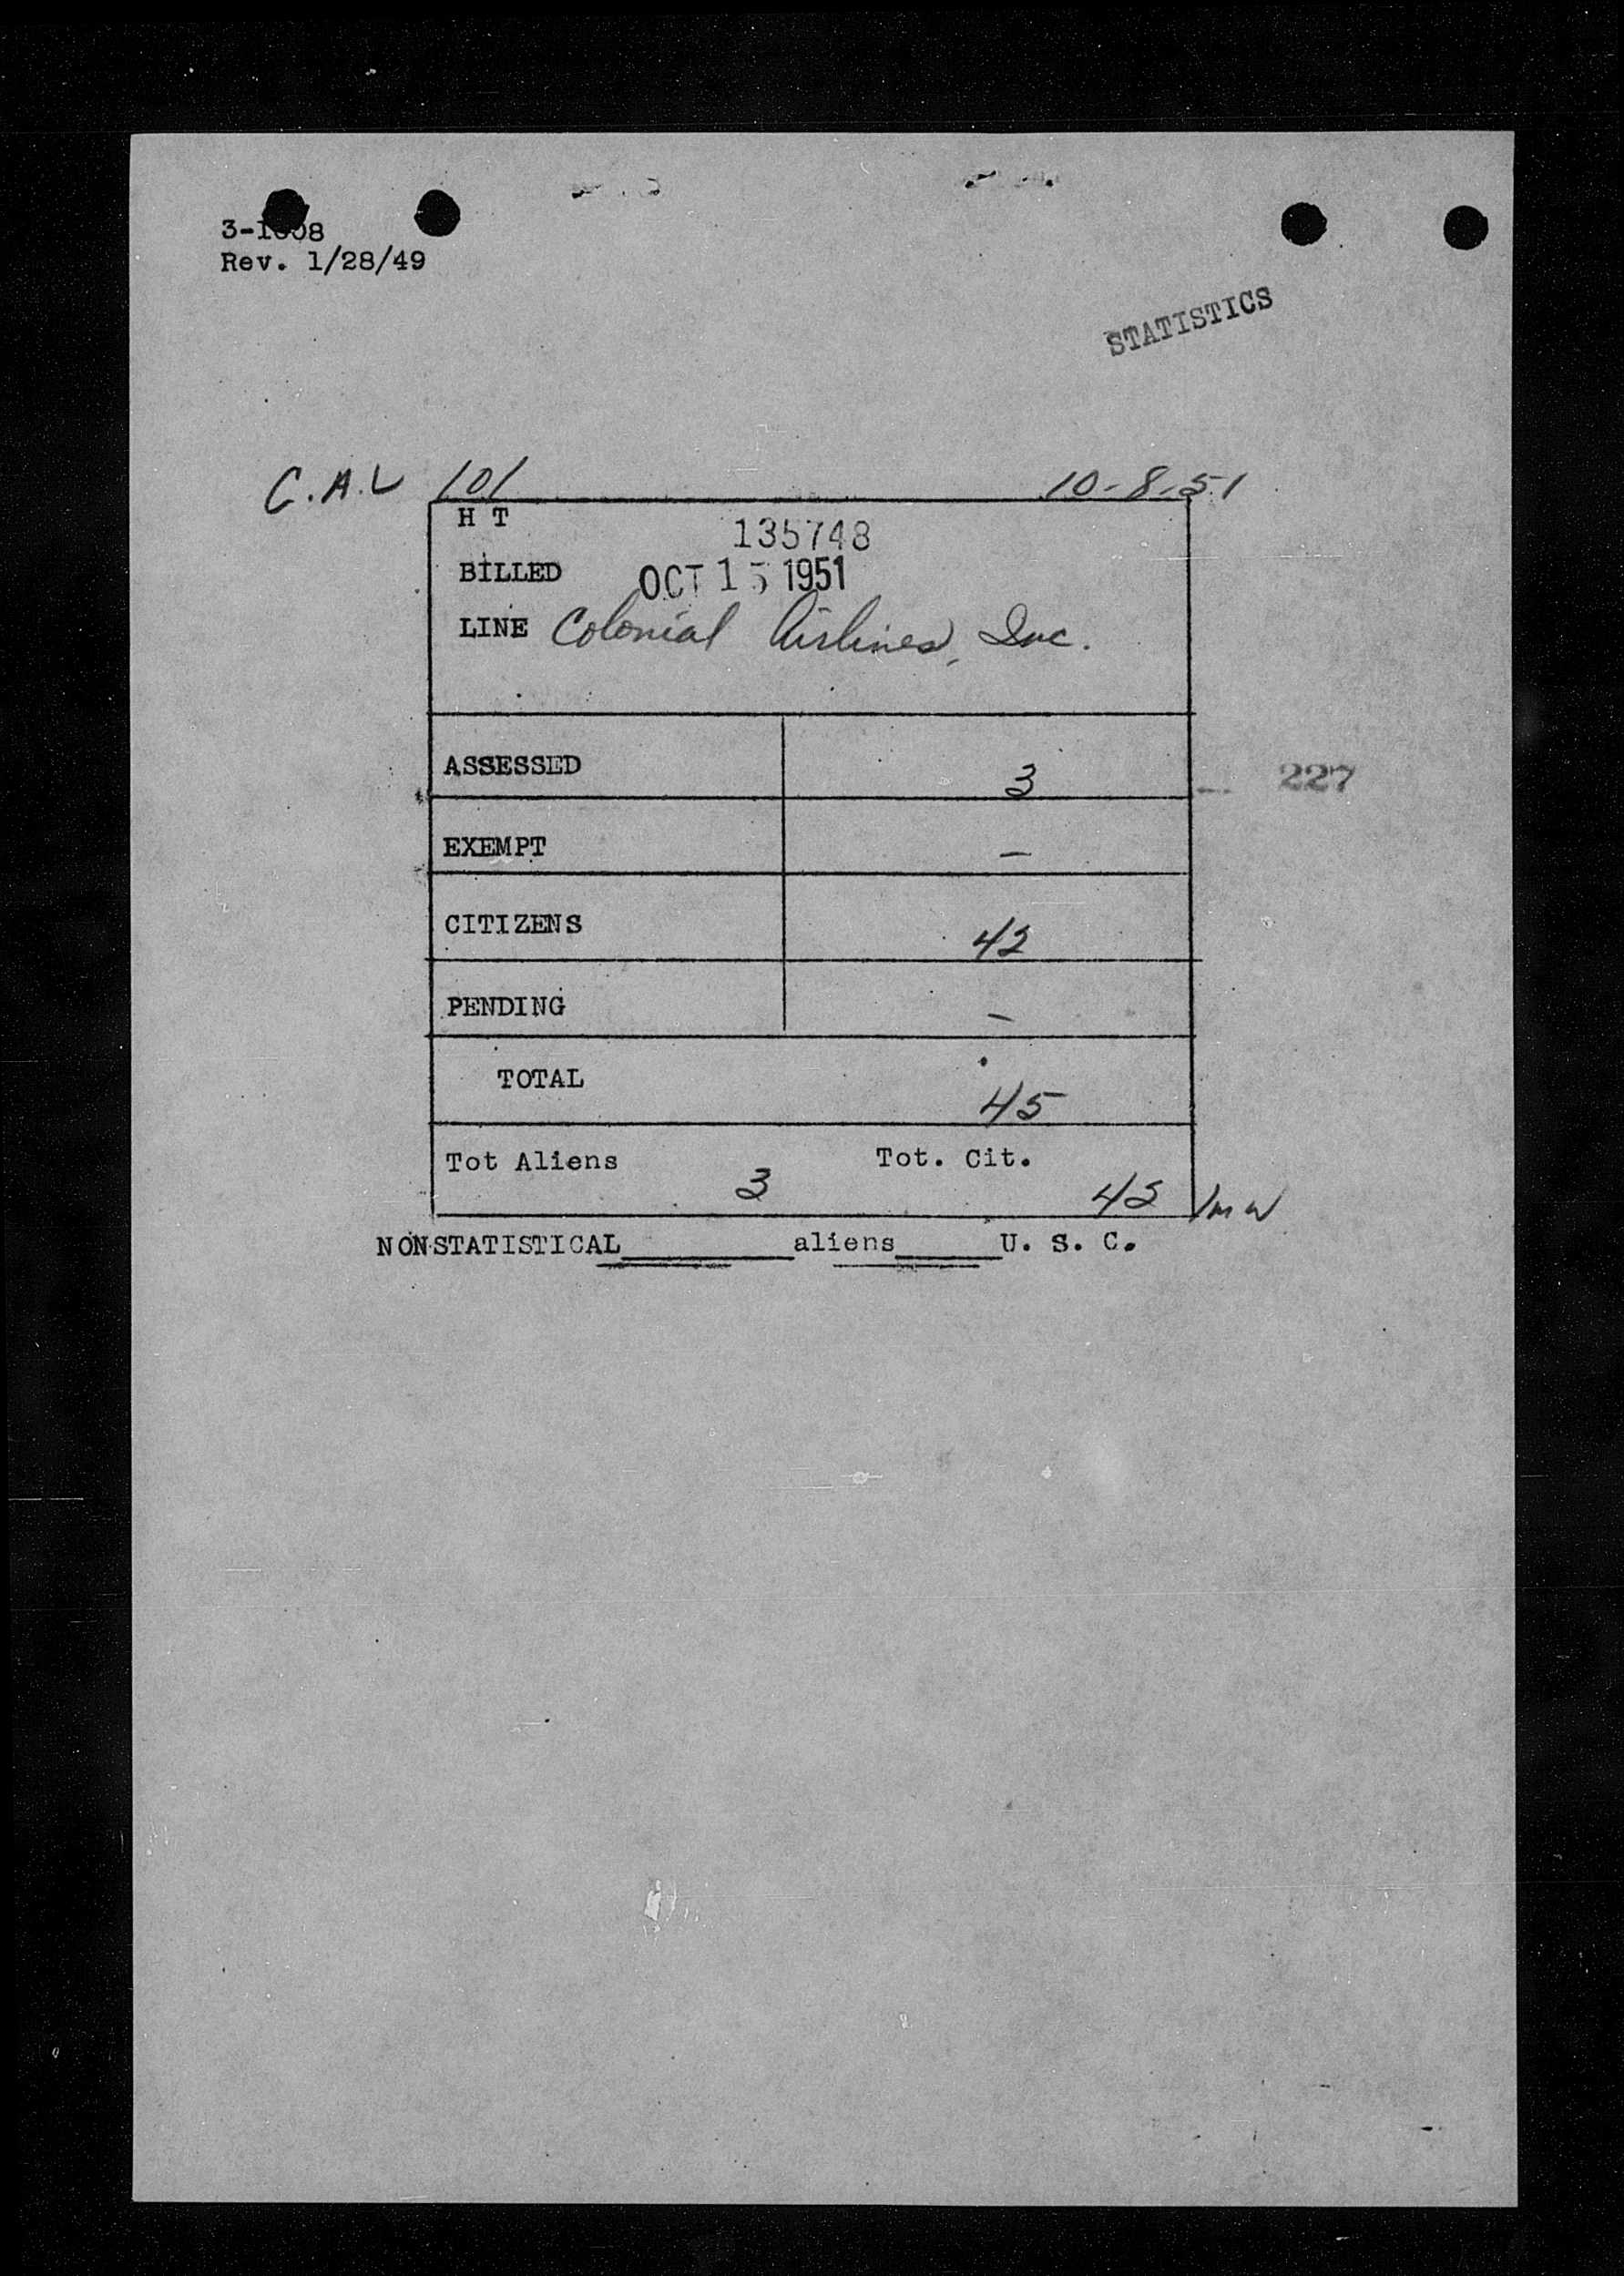 Rev. 1/28/49
STATISTICS
C.A.L 101 10-8-51
H T
135748
BILLED OCT 15 1951
LINE Colonial Airlines, Inc.
ASSESSED 3
227
EXEMPT —
CITIZENS 42
PENDING —
TOTAL 45
Tot Aliens 3 Tot. Cit. 42
NONSTATISTICAL__________aliens______U. S. C.